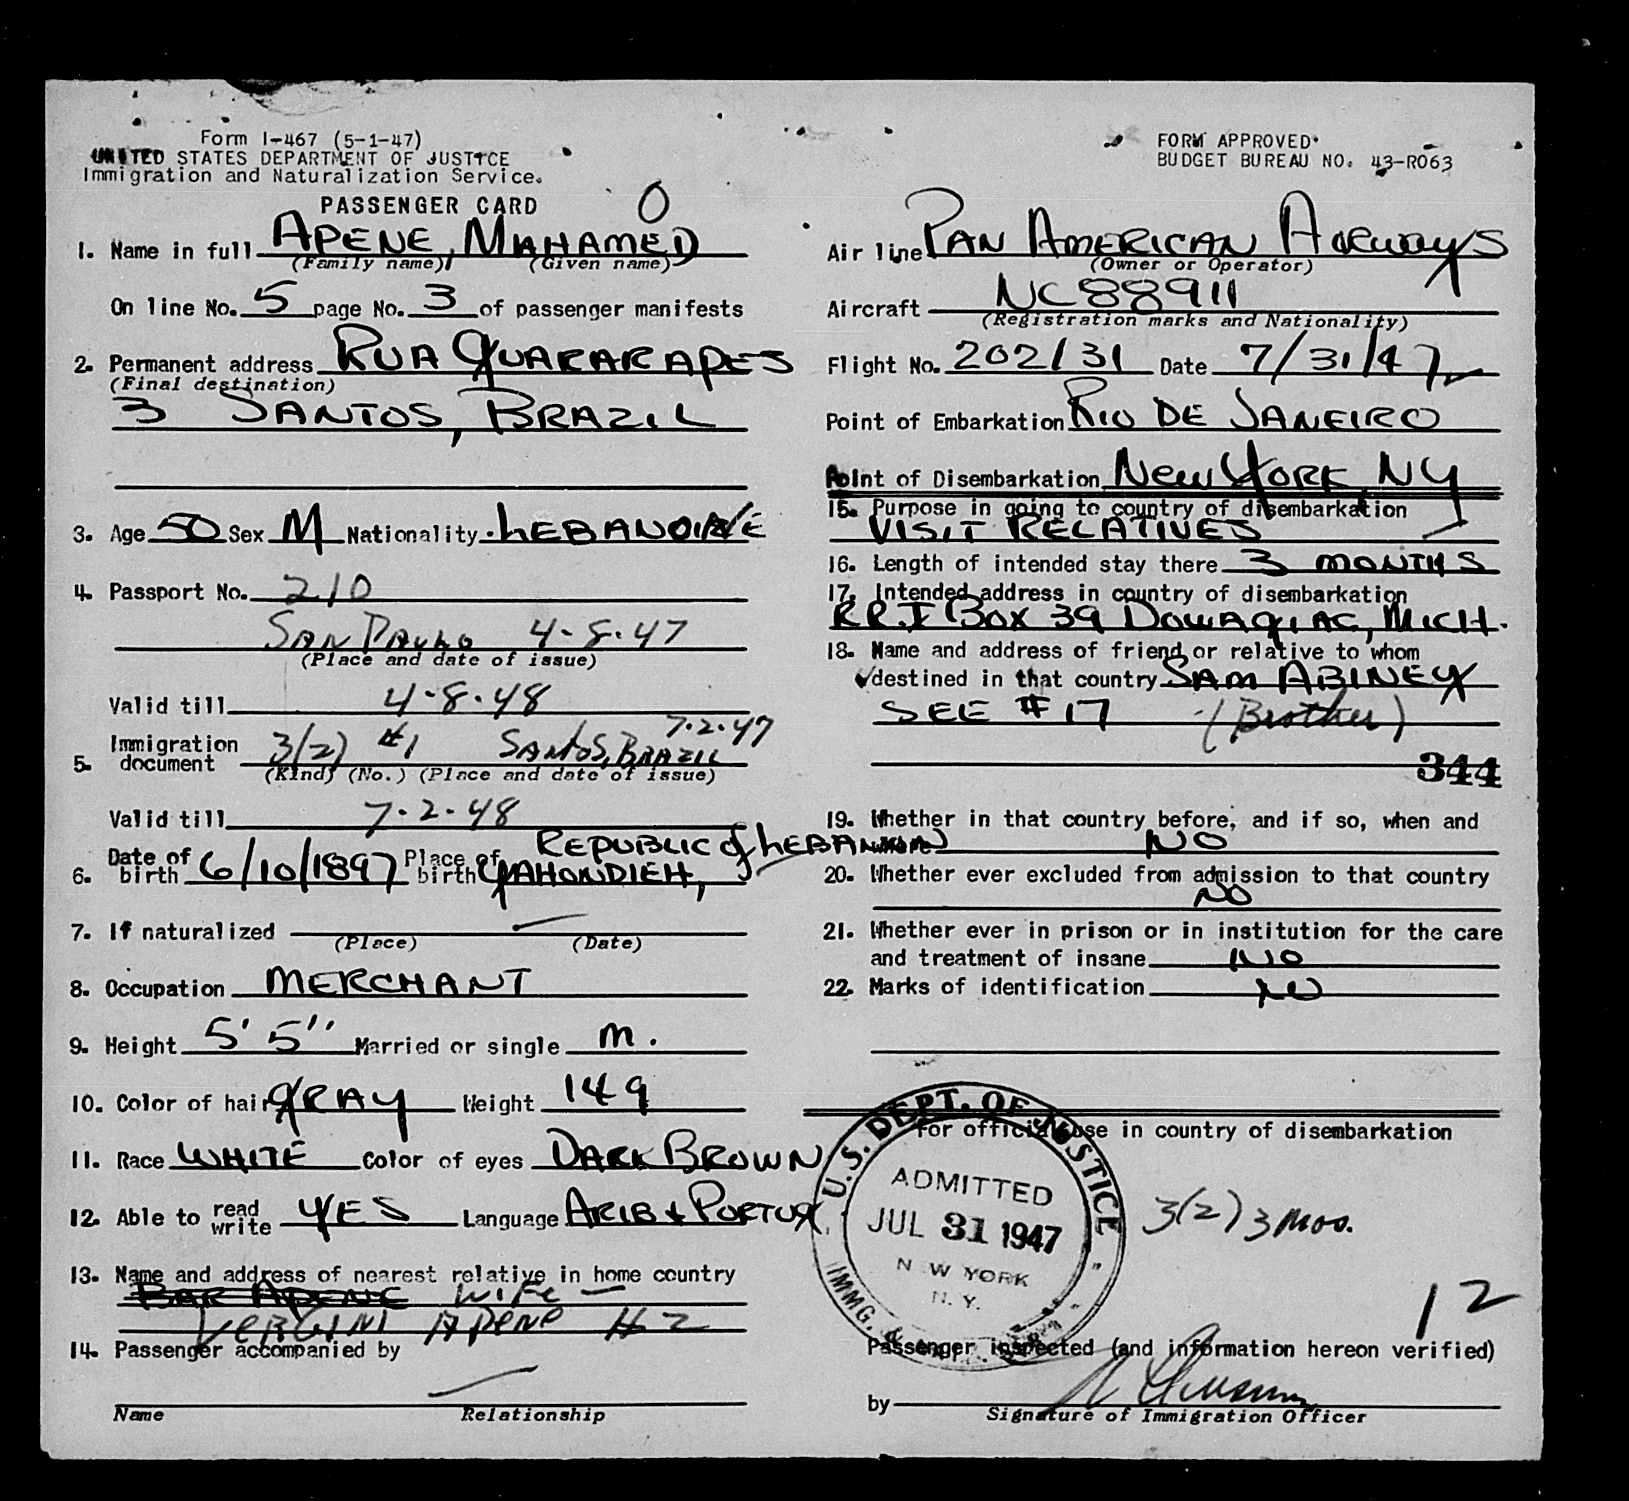 Form I-467 (5-1-47)
UNITED STATES DEPARTMENT OF JUSTICE
Immigration and Naturalization Service.
FORM APPROVED.
BUDGET BUREAU NO. 43-R063
PASSENGER CARD
O
1. Name in full APENE, MAHAMED
(Family name) (Given name)
On line No. 5 page No. 3 of passenger manifests
2. Permanent address RUA GUARARAPES
(Final destination)
3 SANTOS, BRAZIL
3. Age 50 Sex M Nationality LEBANON
4. Passport No. 210
SAN PAULO 4-8-47
(Place and date of issue)
Valid till 4-8-48
5. Immigration document 3(2) #1 SANTOS, BRAZIL 7-2-47
(Kind) (No.) (Place and date of issue)
Valid till 7-2-48
6. Date of birth 6/10/1897 Place of birth YAHONDIEH, REPUBLIC of LEBANON
7. If naturalized —
(Place) (Date)
8. Occupation MERCHANT
9. Height 5' 5'' Married or single M.
10. Color of hair GRAY Weight 149
11. Race WHITE Color of eyes DARK BROWN
12. Able to read write YES Language ARIB & PORTUG
13. Name and address of nearest relative in home country
BAR APENE WIFE —
VERGINI APENE #2
14. Passenger accompanied by
—
Name Relationship
Air line PAN AMERICAN AIRWAYS
(Owner or Operator)
Aircraft NC88911
(Registration marks and Nationality)
Flight No. 202/31 Date 7/31/47
Point of Embarkation RIO DE JANEIRO
Point of Disembarkation NEW YORK, NY
15. Purpose in going to country of disembarkation
VISIT RELATIVES
16. Length of intended stay there 3 MONTHS
17. Intended address in country of disembarkation
R.R.I BOX 39 DOWAGIAC, MICH.
18. Name and address of friend or relative to whom
destined in that country SAM ABINEY
SEE #17 (Brother)
344
19. Whether in that country before, and if so, when and
where NO
20. Whether ever excluded from admission to that country
NO
21. Whether ever in prison or in institution for the care
and treatment of insane NO
22. Marks of identification NO
For official use in country of disembarkation
U.S. DEPT. OF JUSTICE
ADMITTED
JUL 31 1947
N W YORK
N. Y.
IMMG. &
3(2) 3 mos.
12
Passenger inspected (and information hereon verified)
by
Signature of Immigration Officer